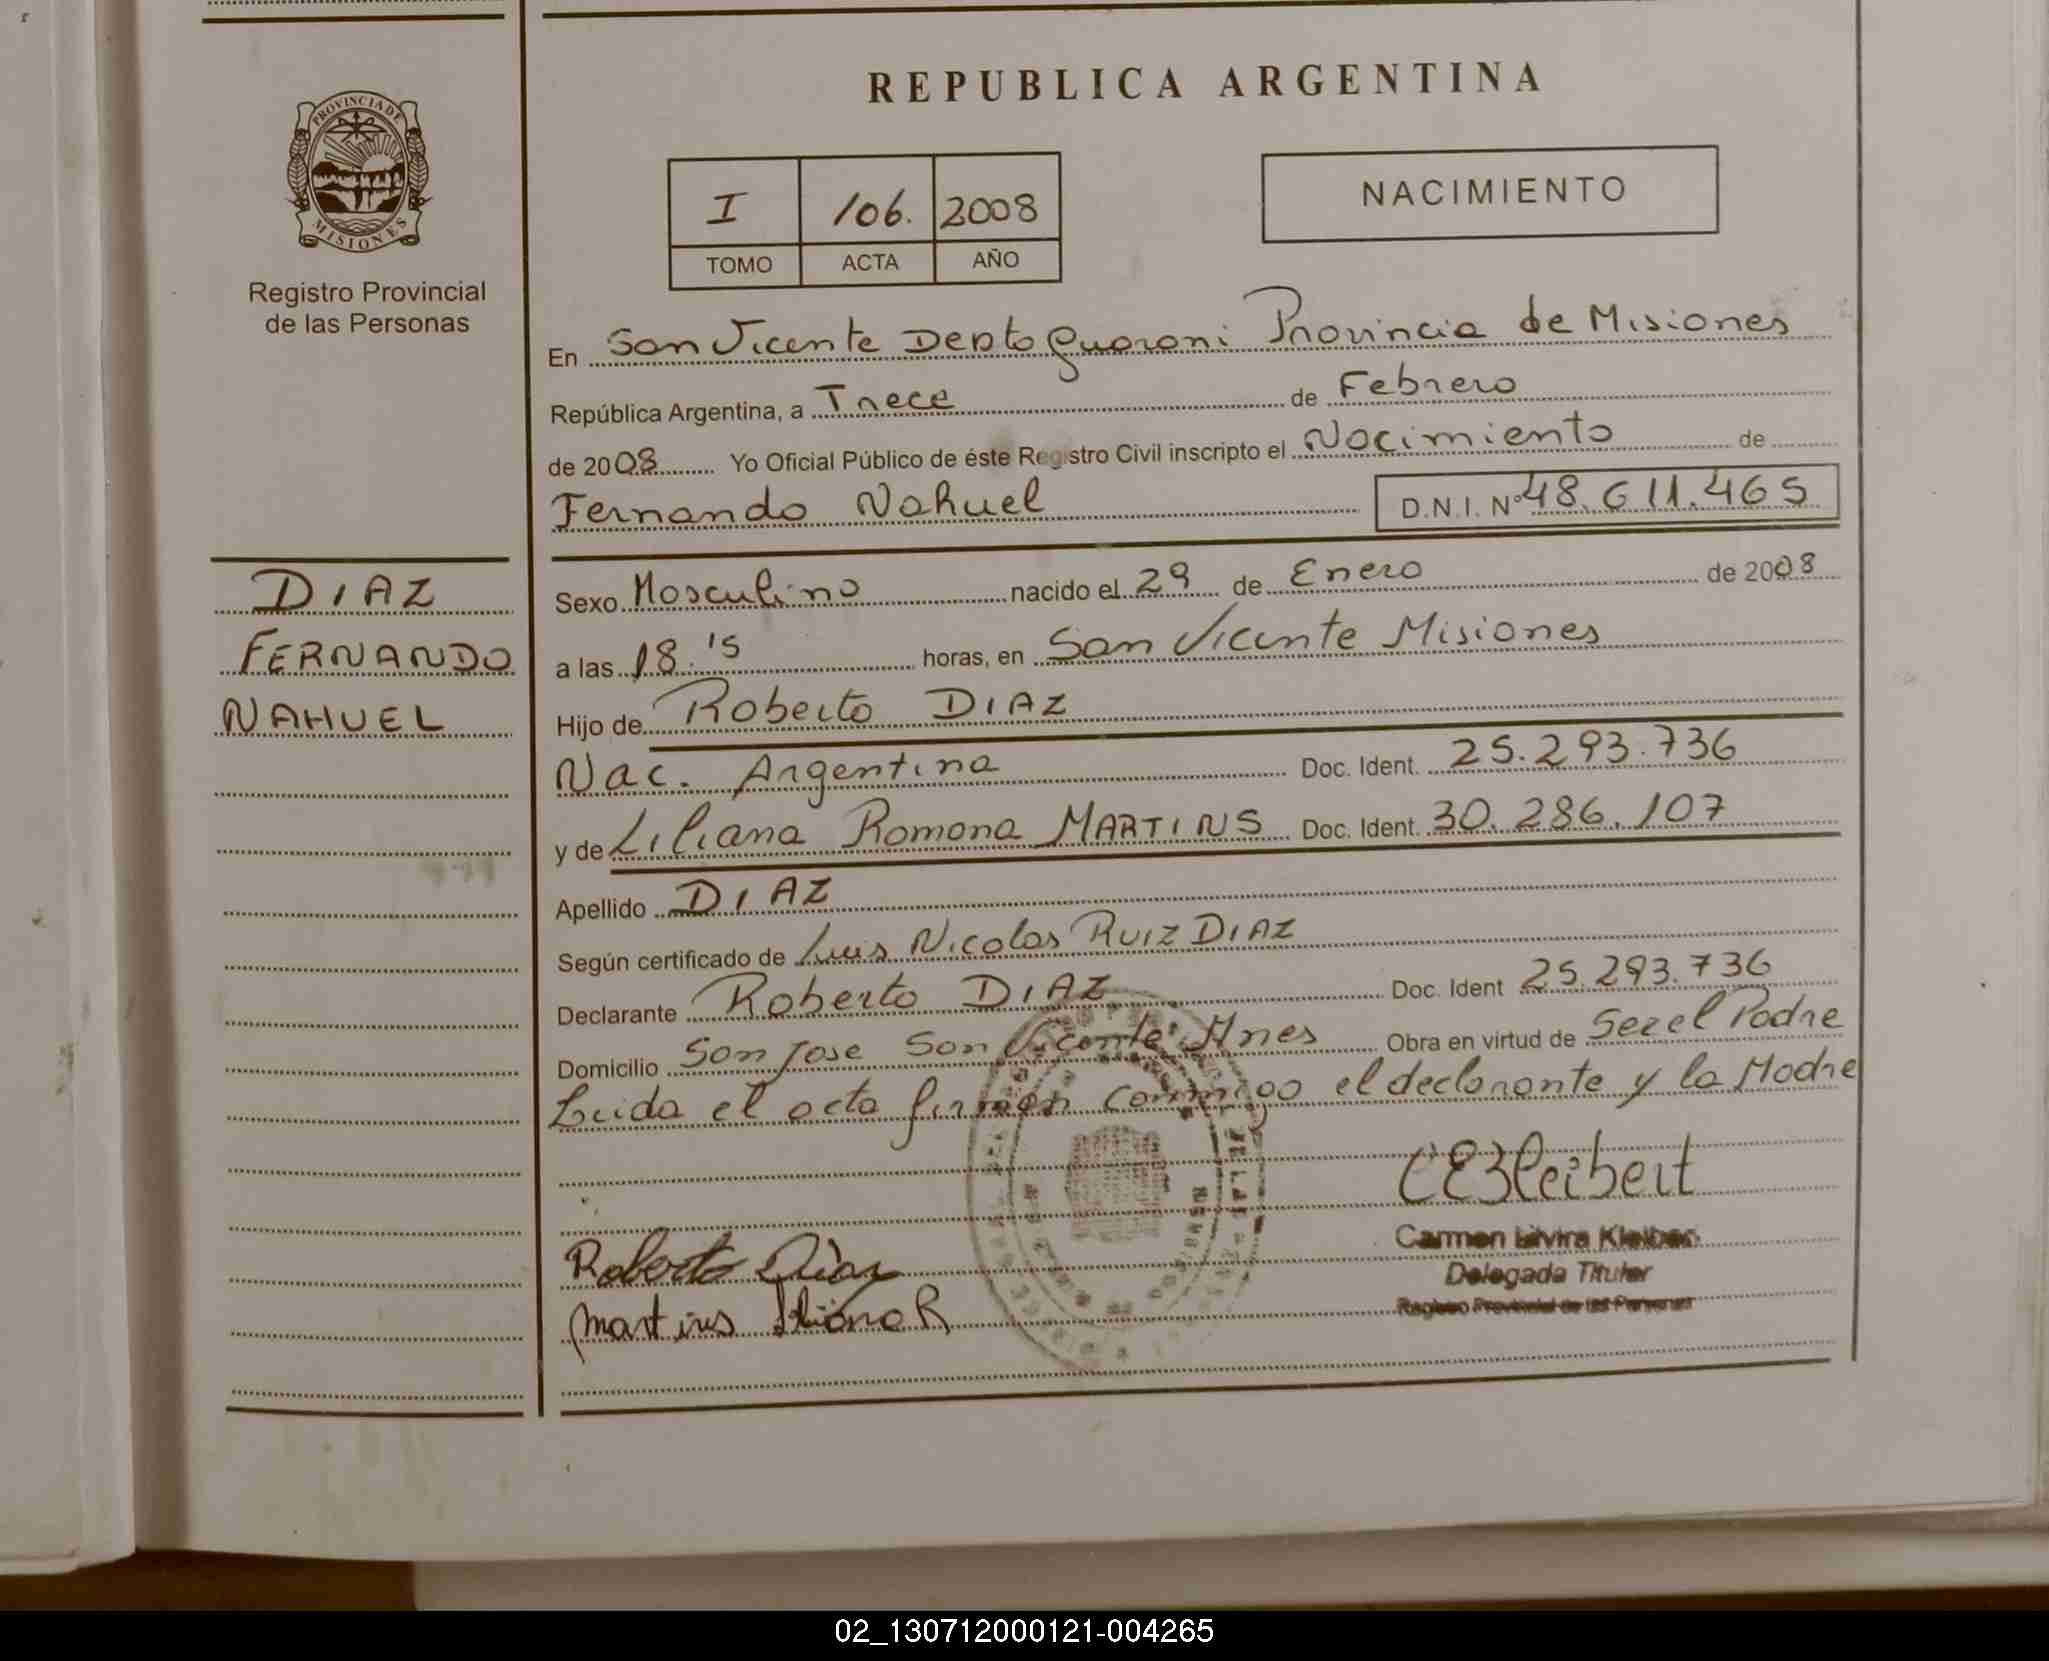 REPUBLICA ARGENTINA
PROVINCIA DE
MISIONES
Registro Provincial
de las Personas
I 106. 2008
TOMO ACTA AÑO
NACIMIENTO
En San Vicente Depto Guarani Provincia de Misiones
República Argentina, a Trece de Febrero
de 2008 Yo Oficial Público de éste Registro Civil inscripto el Nacimiento de
Fernando Nahuel D.N.I. Nº 48.611.465
DIAZ
FERNANDO
NAHUEL
Sexo Masculino nacido el 29 de Enero de 2008
a las 18.15 horas, en San Vicente Misiones
Hijo de Roberto DIAZ
Nac. Argentina Doc. Ident. 25.293.736
y de Liliana Ramona MARTINS Doc. Ident. 30.286.107
Apellido DIAZ
Según certificado de Luis Nicolas RUIZ DIAZ
Declarante Roberto DIAZ Doc. Ident 25.293.736
Domicilio San Jose San Vicente Mnes Obra en virtud de Ser el Padre
Leida el acta firman conmigo el declarante y la Madre
CEKleibert
Carmen Elvira
Delegada Titular
Registro Provincial de las Personas
Roberto Diaz
Martins Liliana R
02_130712000121-004265